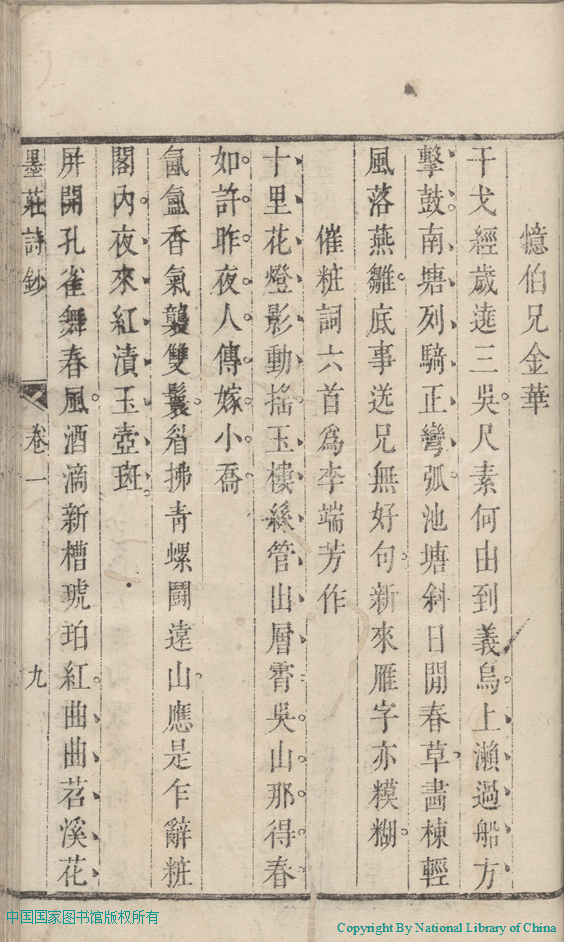 憶伯兄金華
干戈經歲遶三吳尺素何由到義烏上瀨過船方
擊鼓南塘列騎正彎弧池塘斜日閒春草畵棟輕
風落燕雛底事送兄無好句新來雁字亦糢糊
催粧詞六首為李端芳作
十里花燈影動搖玉樓絲管出層霄吳山那得春
如許昨夜人傳嫁小喬
氤氳香氣襲雙鬟眉拂青螺鬪遠山應是乍辭粧
閣內夜來紅漬玉壺斑
屏開孔雀舞春風酒滴新槽琥珀紅曲曲苕溪花
墨莊詩鈔 卷一 九
中国国家图书馆版权所有
Copyright By National Library of China